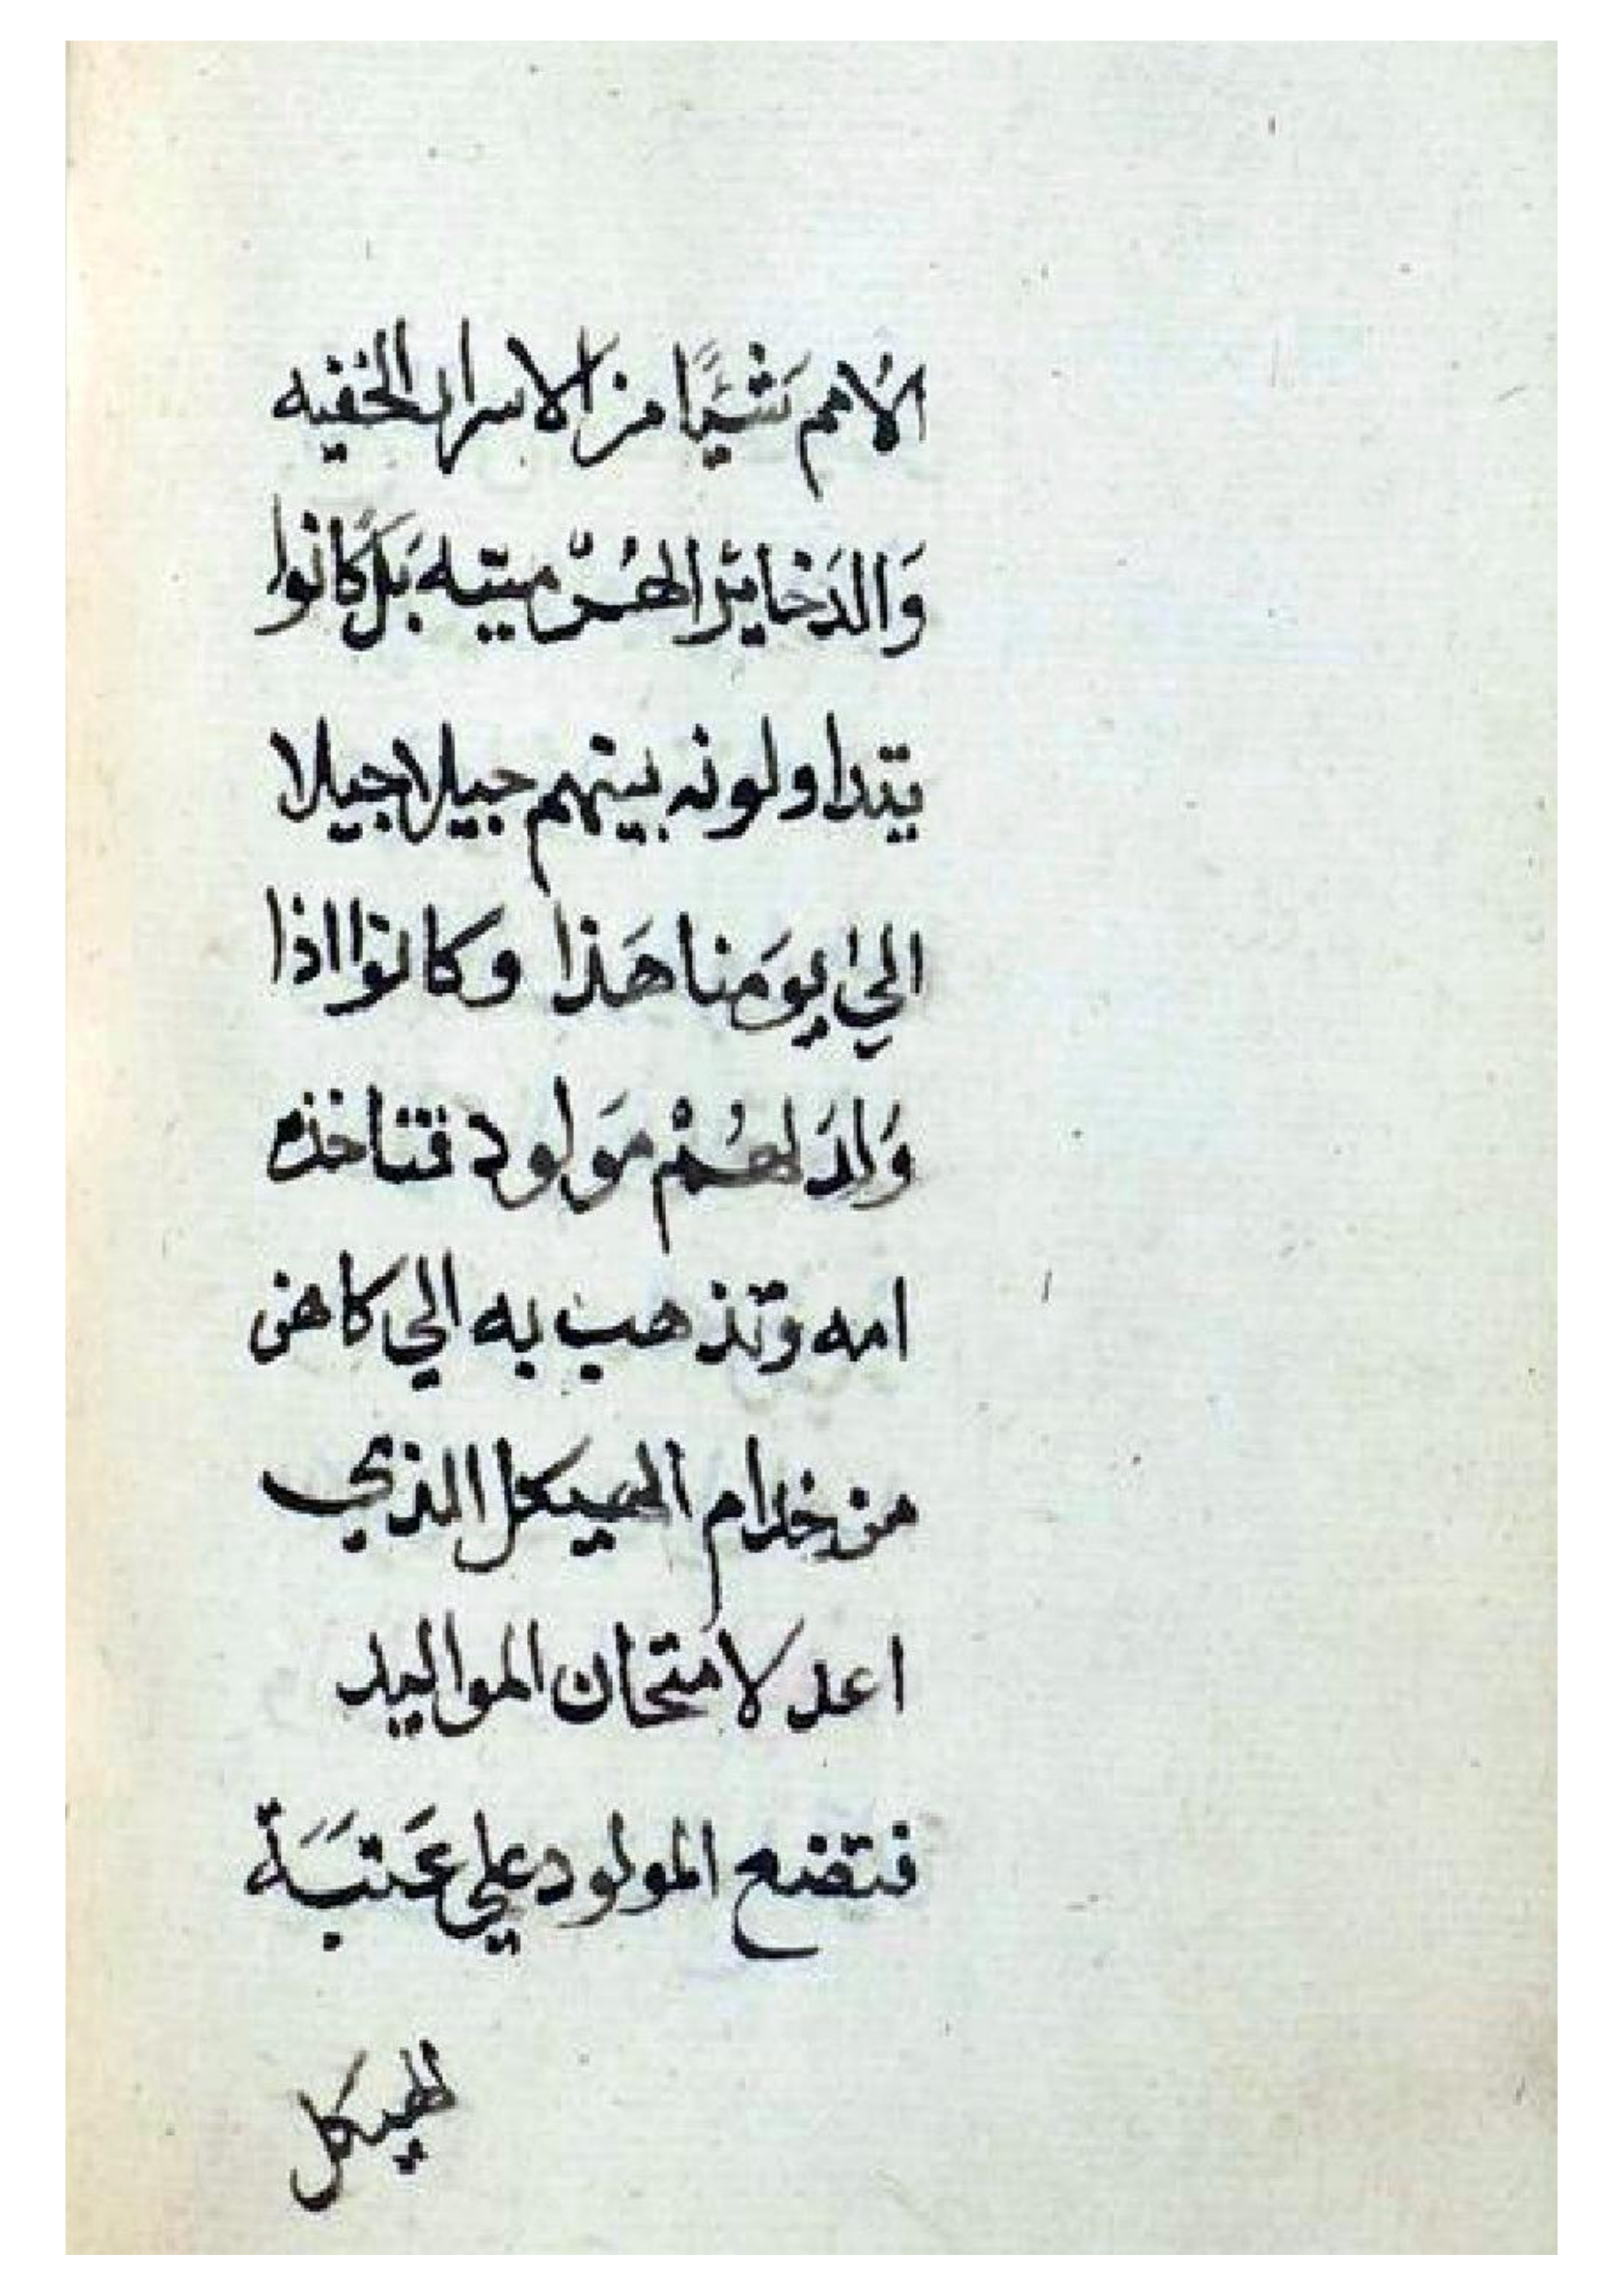 الاُمم شَيًّا من الاسرار الخُفيه
وَالدَخايرَ الهُرْميتيه بَل كَانوا
يتداولونه بينهم جيلا جيلا
اليٰ يومَنا هَذا وكانوا اذا
وَلدَ لهُمْ مَولود فتاخذه
امه وتذهب به الي كاهن
من خدام الهيكل الذي
اعد لامتحان المواليد
فتضع المولود علي عَتبَةَ
الهيكل